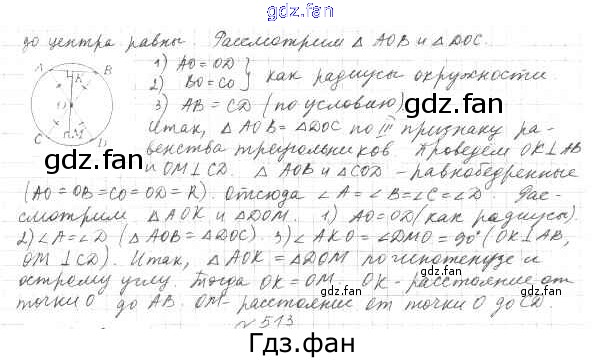 gdz.fan
до центра равны. Рассмотрим △ AOB и △ DOC.
A B K O C M D
1) AO = OD
2) BO = CO } как радиусы окружности
3) AB = CD (по условию)
Итак, △ AOB = △ DOC по III признаку ра-
венства треугольников. Проведем OK ⊥ AB
и OM ⊥ CD. △ AOB и △ COD - равнобедренные
(AO = OB = CO = OD = R). Отсюда ∠A = ∠B = ∠C = ∠D. Рас-
смотрим △ AOK и △ DOM. 1) AO = OD (как радиусы).
2) ∠A = ∠D (△ AOB = △ DOC). 3) ∠AKO = ∠DMO = 90° (OK ⊥ AB,
OM ⊥ CD). Итак, △ AOK = △ DOM по гипотенузе и
острому углу. Тогда OK = OM. OK - расстояние от
точки O до AB. OM - расстояние от точки O до CD.
№ 513
gdz.fan
gdz.fan
gdz.fan
gdz.fan
Гдз.фан